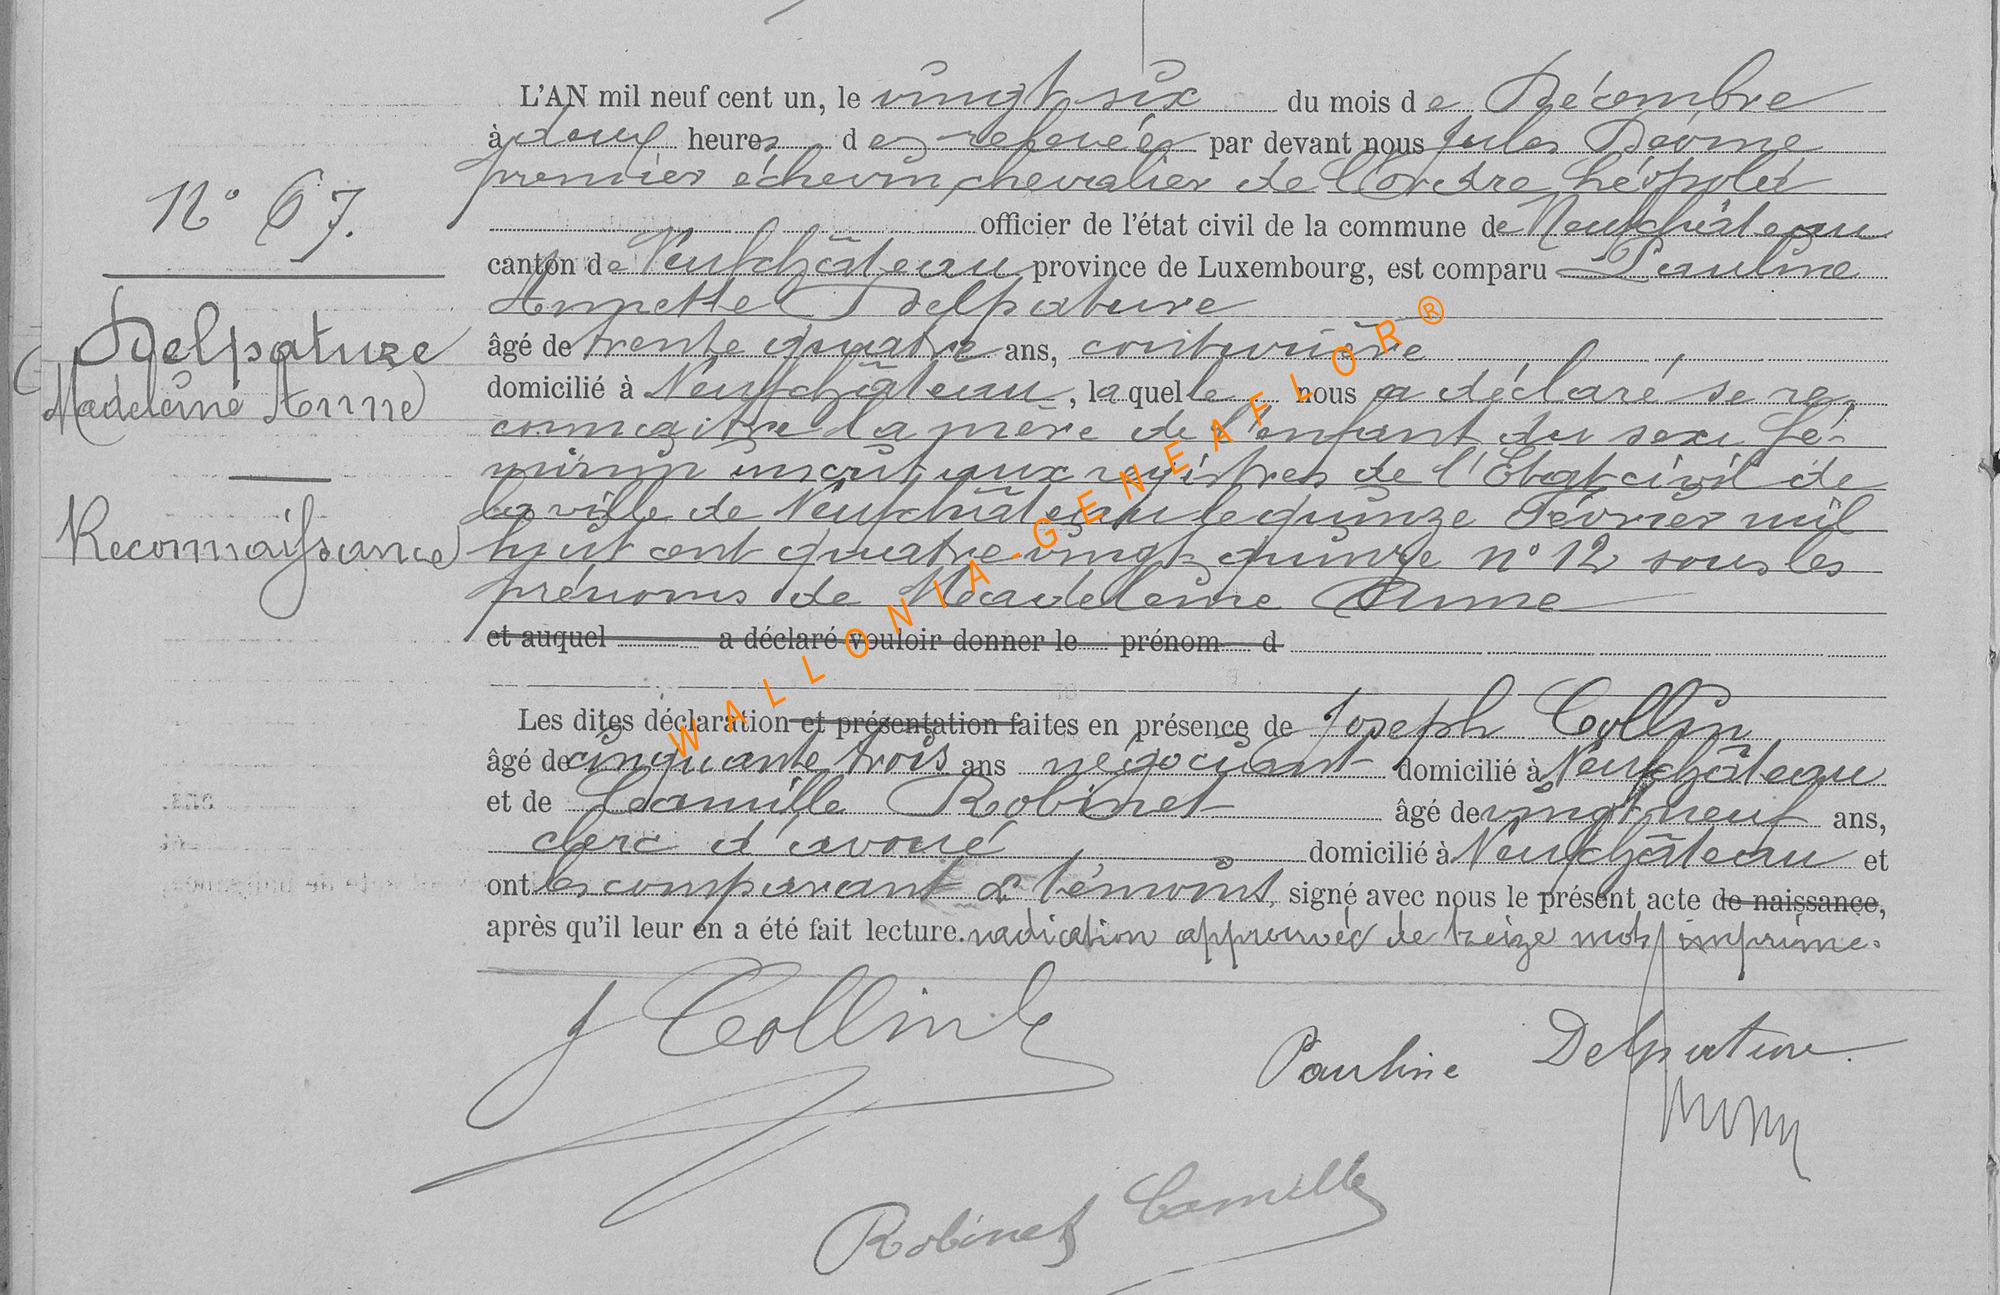 L'AN mil neuf cent un, le vingt six du mois de Décembre
à deux heures de relevée par devant nous Jules
premier échevin, chevalier de l'Ordre Léopold
officier de l'état civil de la commune de Neufchâteau
canton de Neufchâteau province de Luxembourg, est comparu Pauline
Annette Delpature
âgé de trente quatre ans, couturière
domicilié à Neufchâteau, laquelle nous a déclaré se re-
connaitre la mère de l'enfant du sexe fé-
minin inscrit aux registres de l'Etat civil de
la ville de Neufchâteau le quinze Février mil
huit cent quatre vingt quinze n° 12 sous les
prénoms de Madeleine Anne
et auquel a déclaré vouloir donner le prénom d
Les dites déclaration et présentation faites en présence de Joseph Collin
âgé de cinquante trois ans négociant domicilié à Neufchâteau
et de Camille Robinet âgé de vingt neuf ans,
clerc d'avoué domicilié à Neufchâteau et
ont les comparant & témoins, signé avec nous le présent acte de naissance,
après qu'il leur en a été fait lecture. radiation approuvée de treize mots imprimé.
N° 67.
Delpature
Madeleine Anne
Reconnaissance
J Collin
Pauline Delpature
Robinet Camille
WALLONIA-GENEAFLOR®